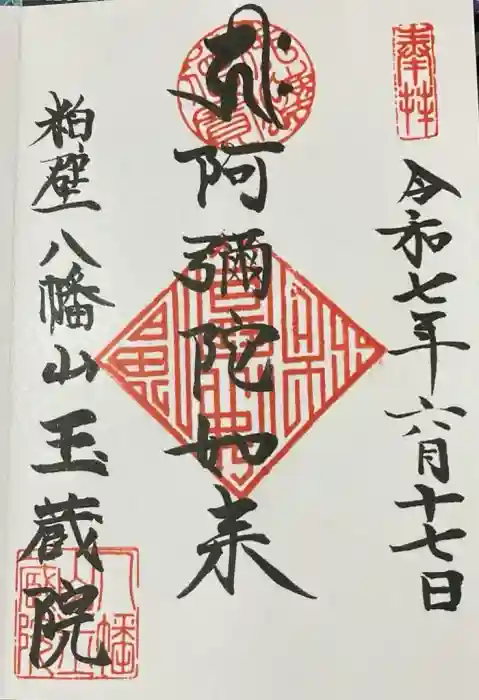 奉拝
令和七年六月十七日
阿彌陀如来
粕壁八幡山玉蔵院
八幡
山玉
蔵院